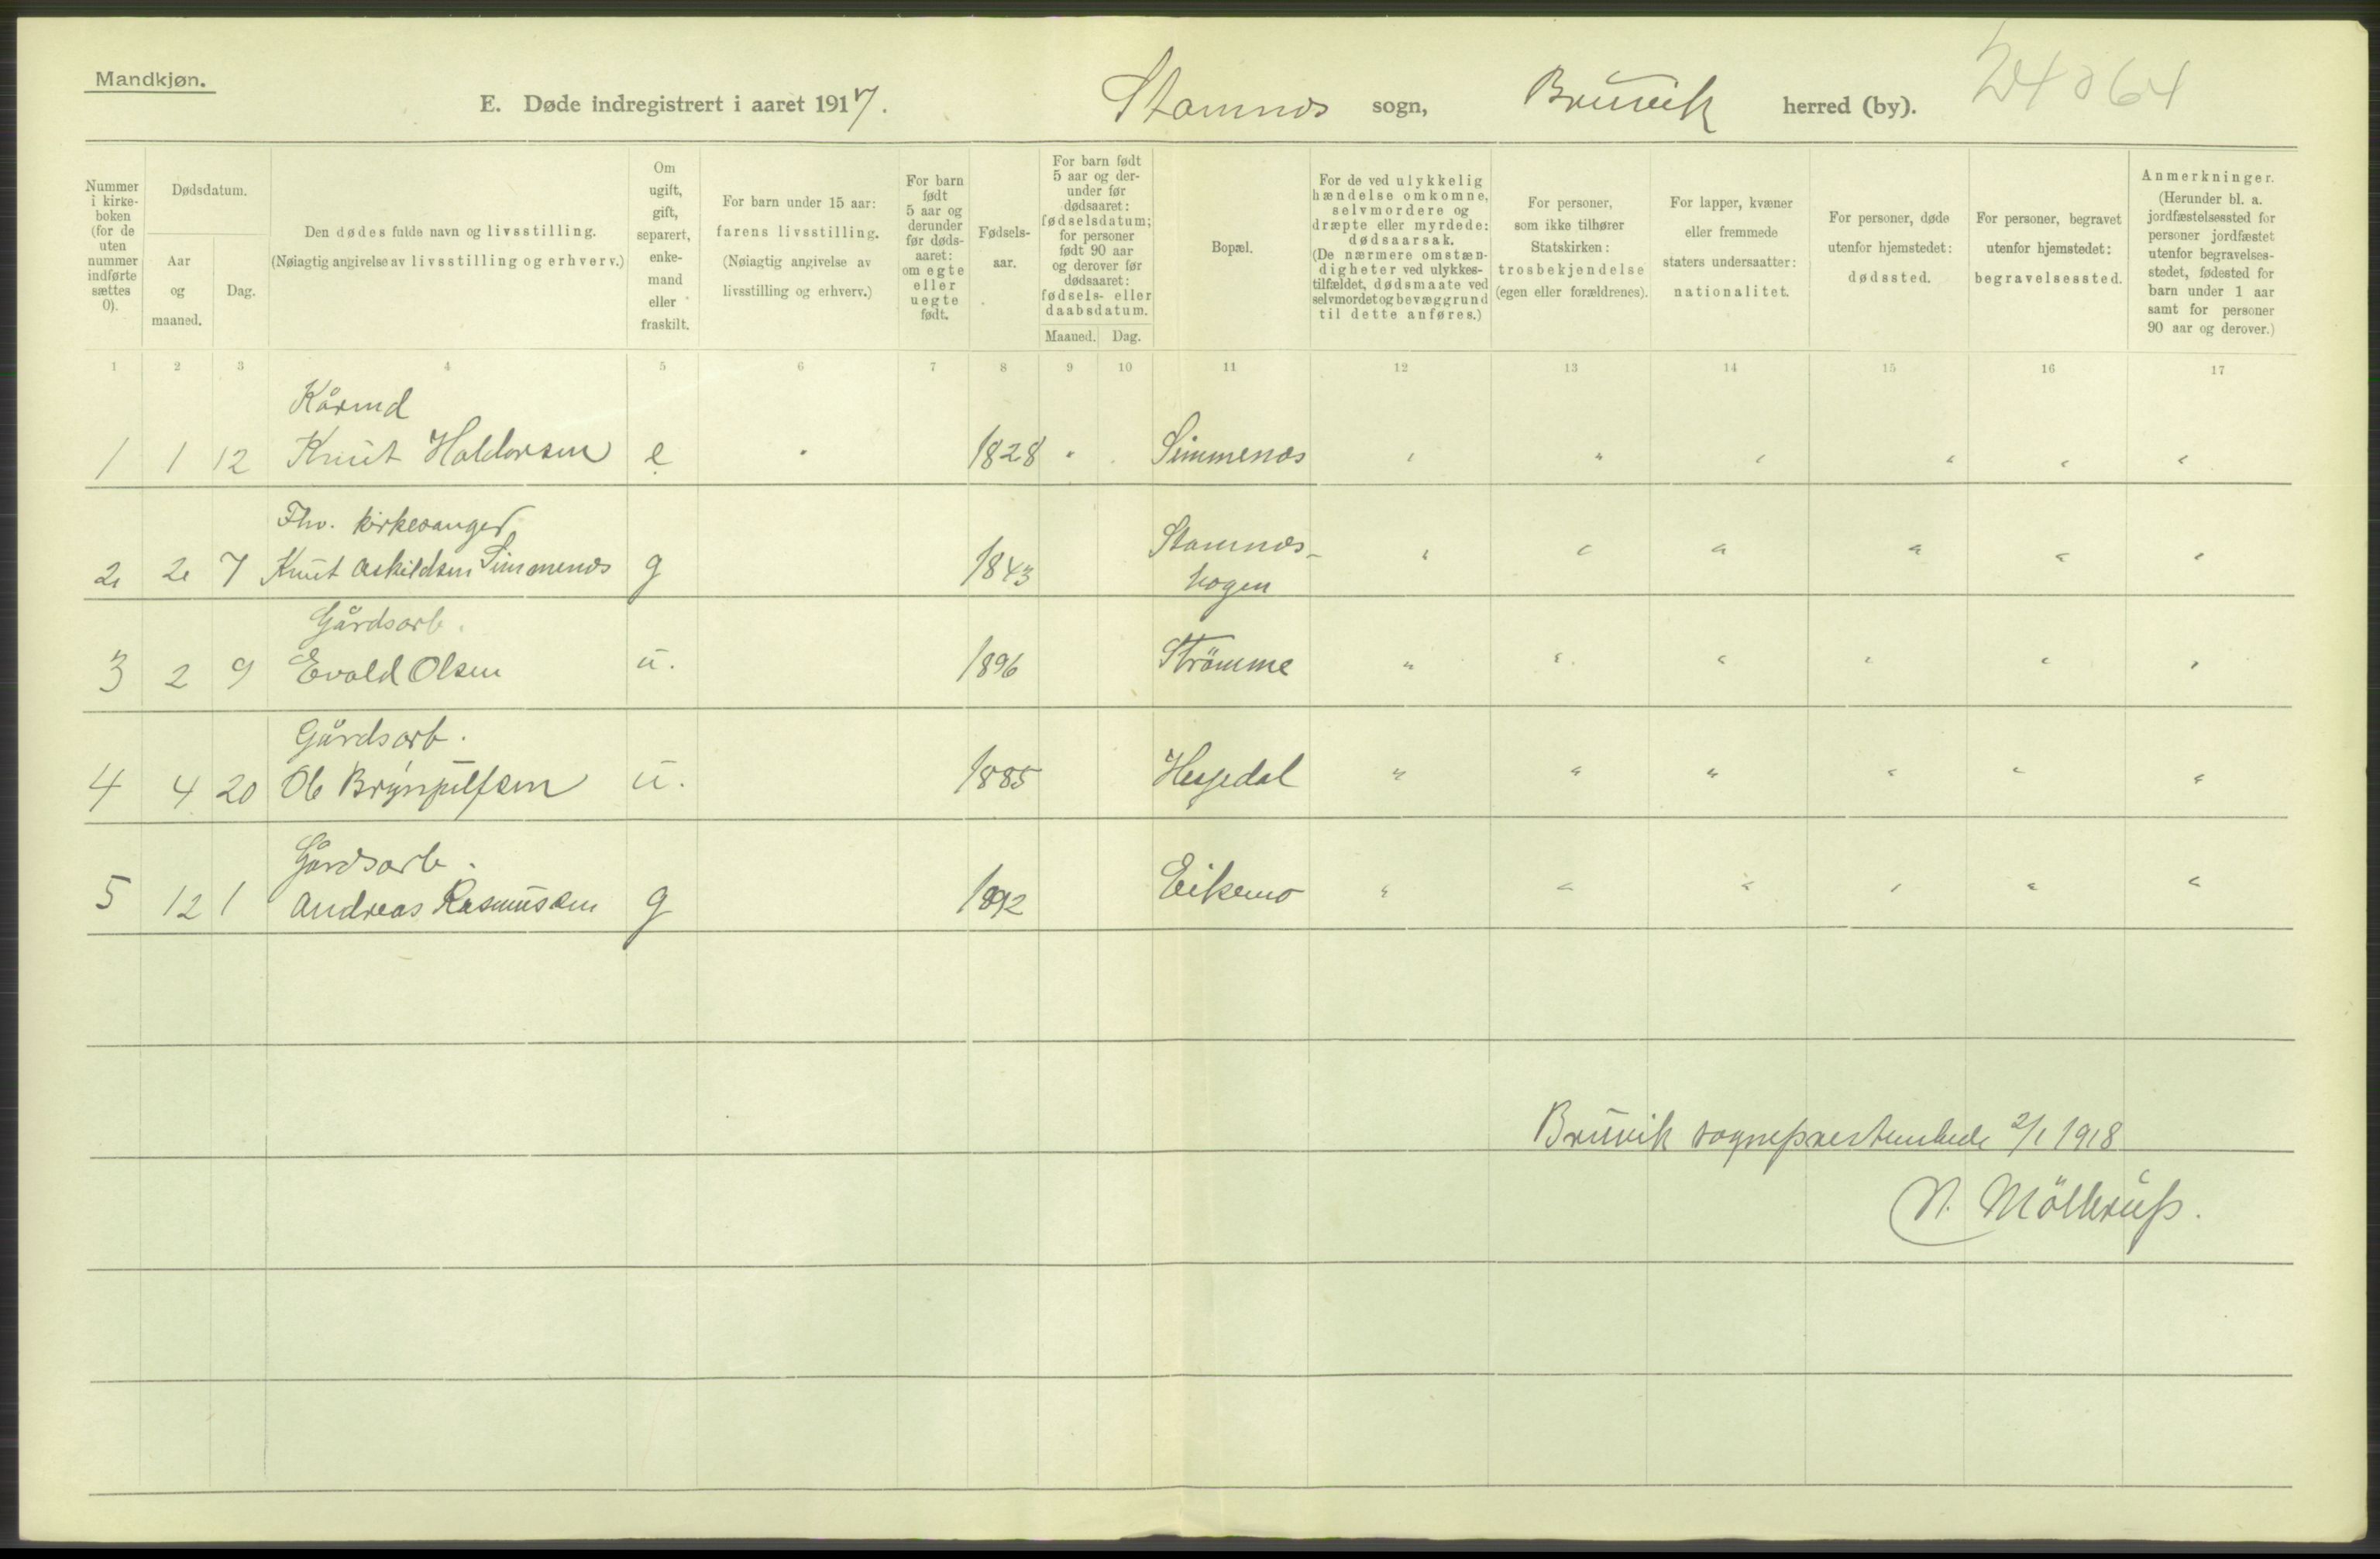 Mandkjøn.
E. Døde indregistrert i aaret 1917. Stamnes sogn, Bruvik herred (by).
Nummer i kirke-boken (for de uten nummer indførte sættes 0).
Dødsdatum.
Aar og maaned.
Dag.
Den dødes fulde navn og livsstilling.
(Nøiagtig angivelse av livsstilling og erhverv.)
Om ugift, gift, separert, enke-mand eller fraskilt.
For barn under 15 aar:
farens livsstilling.
(Nøiagtig angivelse av livsstilling og erhverv.)
For barn født 5 aar og derunder før døds-aaret: om egte eller uegte født.
Fødsels-aar.
For barn født 5 aar og der-under før dødsaaret: fødselsdatum; for personer født 90 aar og derover før dødsaaret: fødsels- eller daabsdatum.
Maaned. Dag.
Bopæl.
For de ved ulykkelig hændelse omkomne, selvmordere og dræpte eller myrdede: dødsaarsak. (De nærmere omstæn-digheter ved ulykkes-tilfældet, dødsmaate ved selvmordet og bevæggrund til dette anføres.)
For personer, som ikke tilhører Statskirken: trosbekjendelse (egen eller forældrenes).
For lapper, kvæner eller fremmede staters undersaatter: nationalitet.
For personer, døde utenfor hjemstedet: dødssted.
For personer, begravet utenfor hjemstedet: begravelsessted.
Anmerkninger. (Herunder bl. a. jordfæstelsessted for personer jordfæstet utenfor begravelses-stedet, fødested for barn under 1 aar samt for personer 90 aar og derover.)
1 2 3 4 5 6 7 8 9 10 11 12 13 14 15 16 17
Kårmd
1 1 12 Knut Haldorsen e. " 1828 " " Simmenes " " " " " "
Fhv. kirkesanger
2 2 7 Knut Askildsen Simmenes g 1843 Stamnes-hagen " " " " " "
Gårdsarb.
3 2 9 Evald Olsen u. 1896 Strömme " " " " " "
Gårdsarb.
4 4 20 Ole Brynjulfsen u. 1885 Hesjedal " " " " " "
Gårdsarb.
5 12 1 Andreas Rasmussen g 1892 Eikemo " " " " " "
Bruvik sogneprestembede 2/1 1918
N. Möllerup.